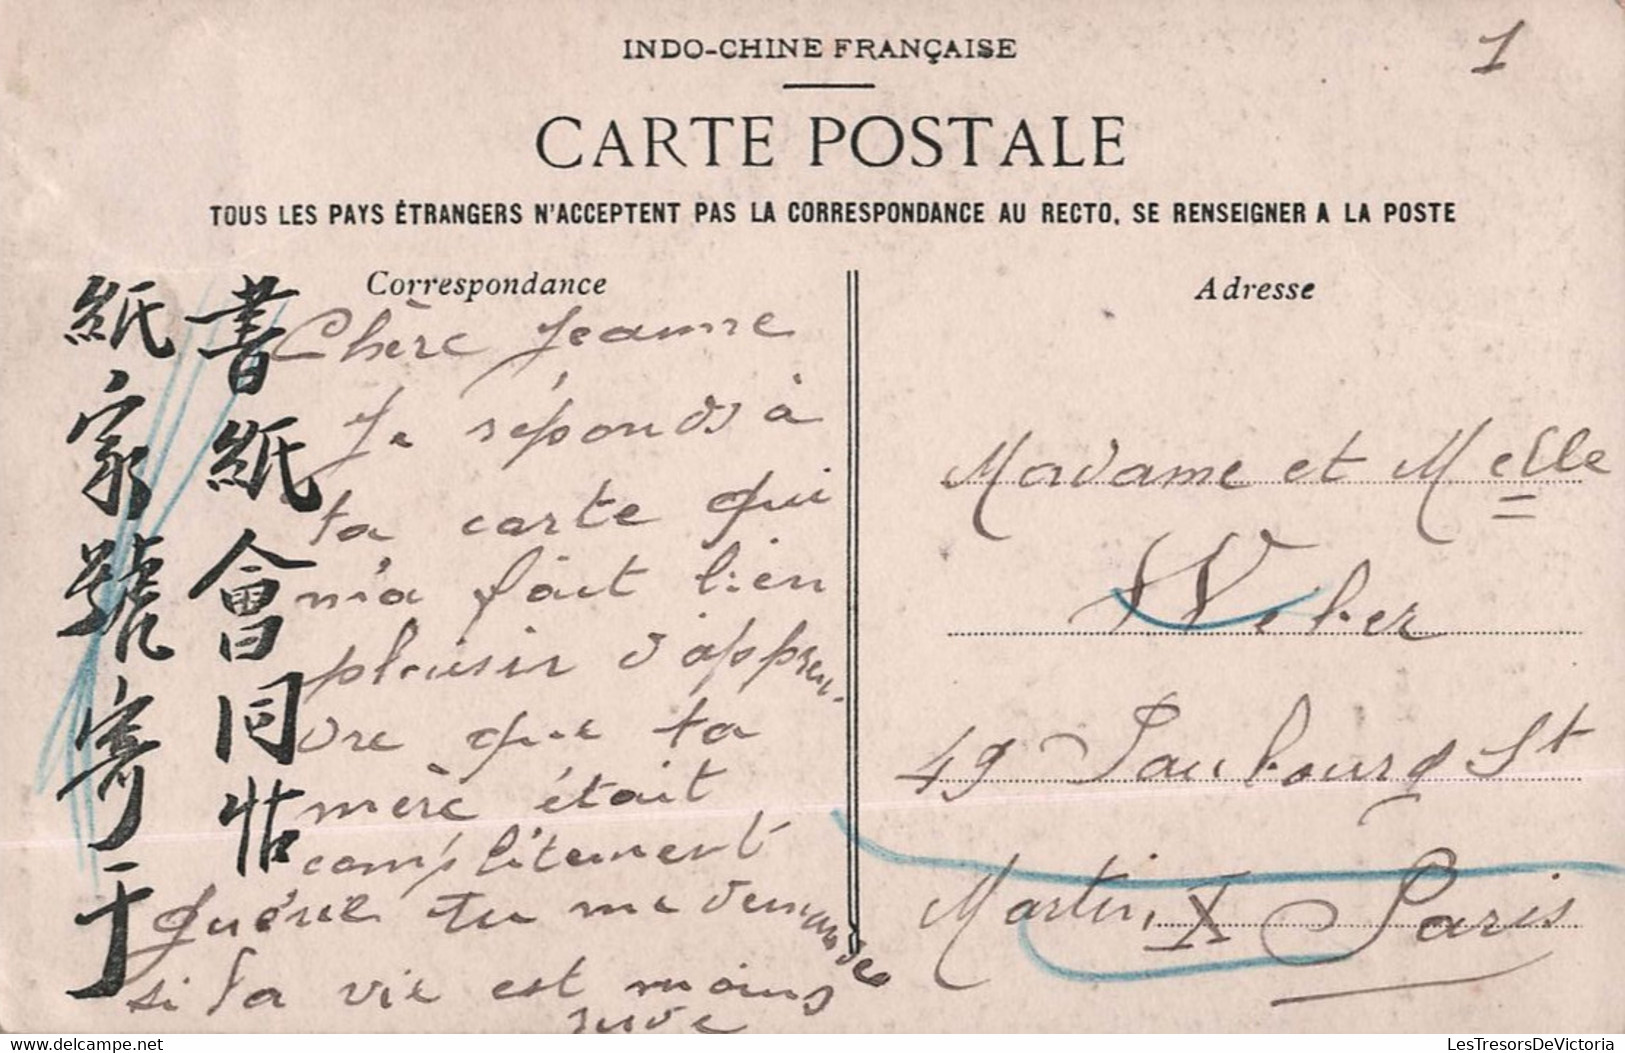 INDO-CHINE FRANÇAISE
1
CARTE POSTALE
TOUS LES PAYS ÉTRANGERS N'ACCEPTENT PAS LA CORRESPONDANCE AU RECTO, SE RENSEIGNER A LA POSTE
Correspondance
書紙會同帖
紙家號寄于
Chère Jeanne
Je réponds à
ta carte qui
m'a fait bien
plaisir d'appren-
dre que ta
mère était
complitement
guérie tu me demandes
si la vie est moins
Adresse
Madame et Melle
Weber
49 Faubourg St
Martin, X Paris
LesTresorsDeVictoria